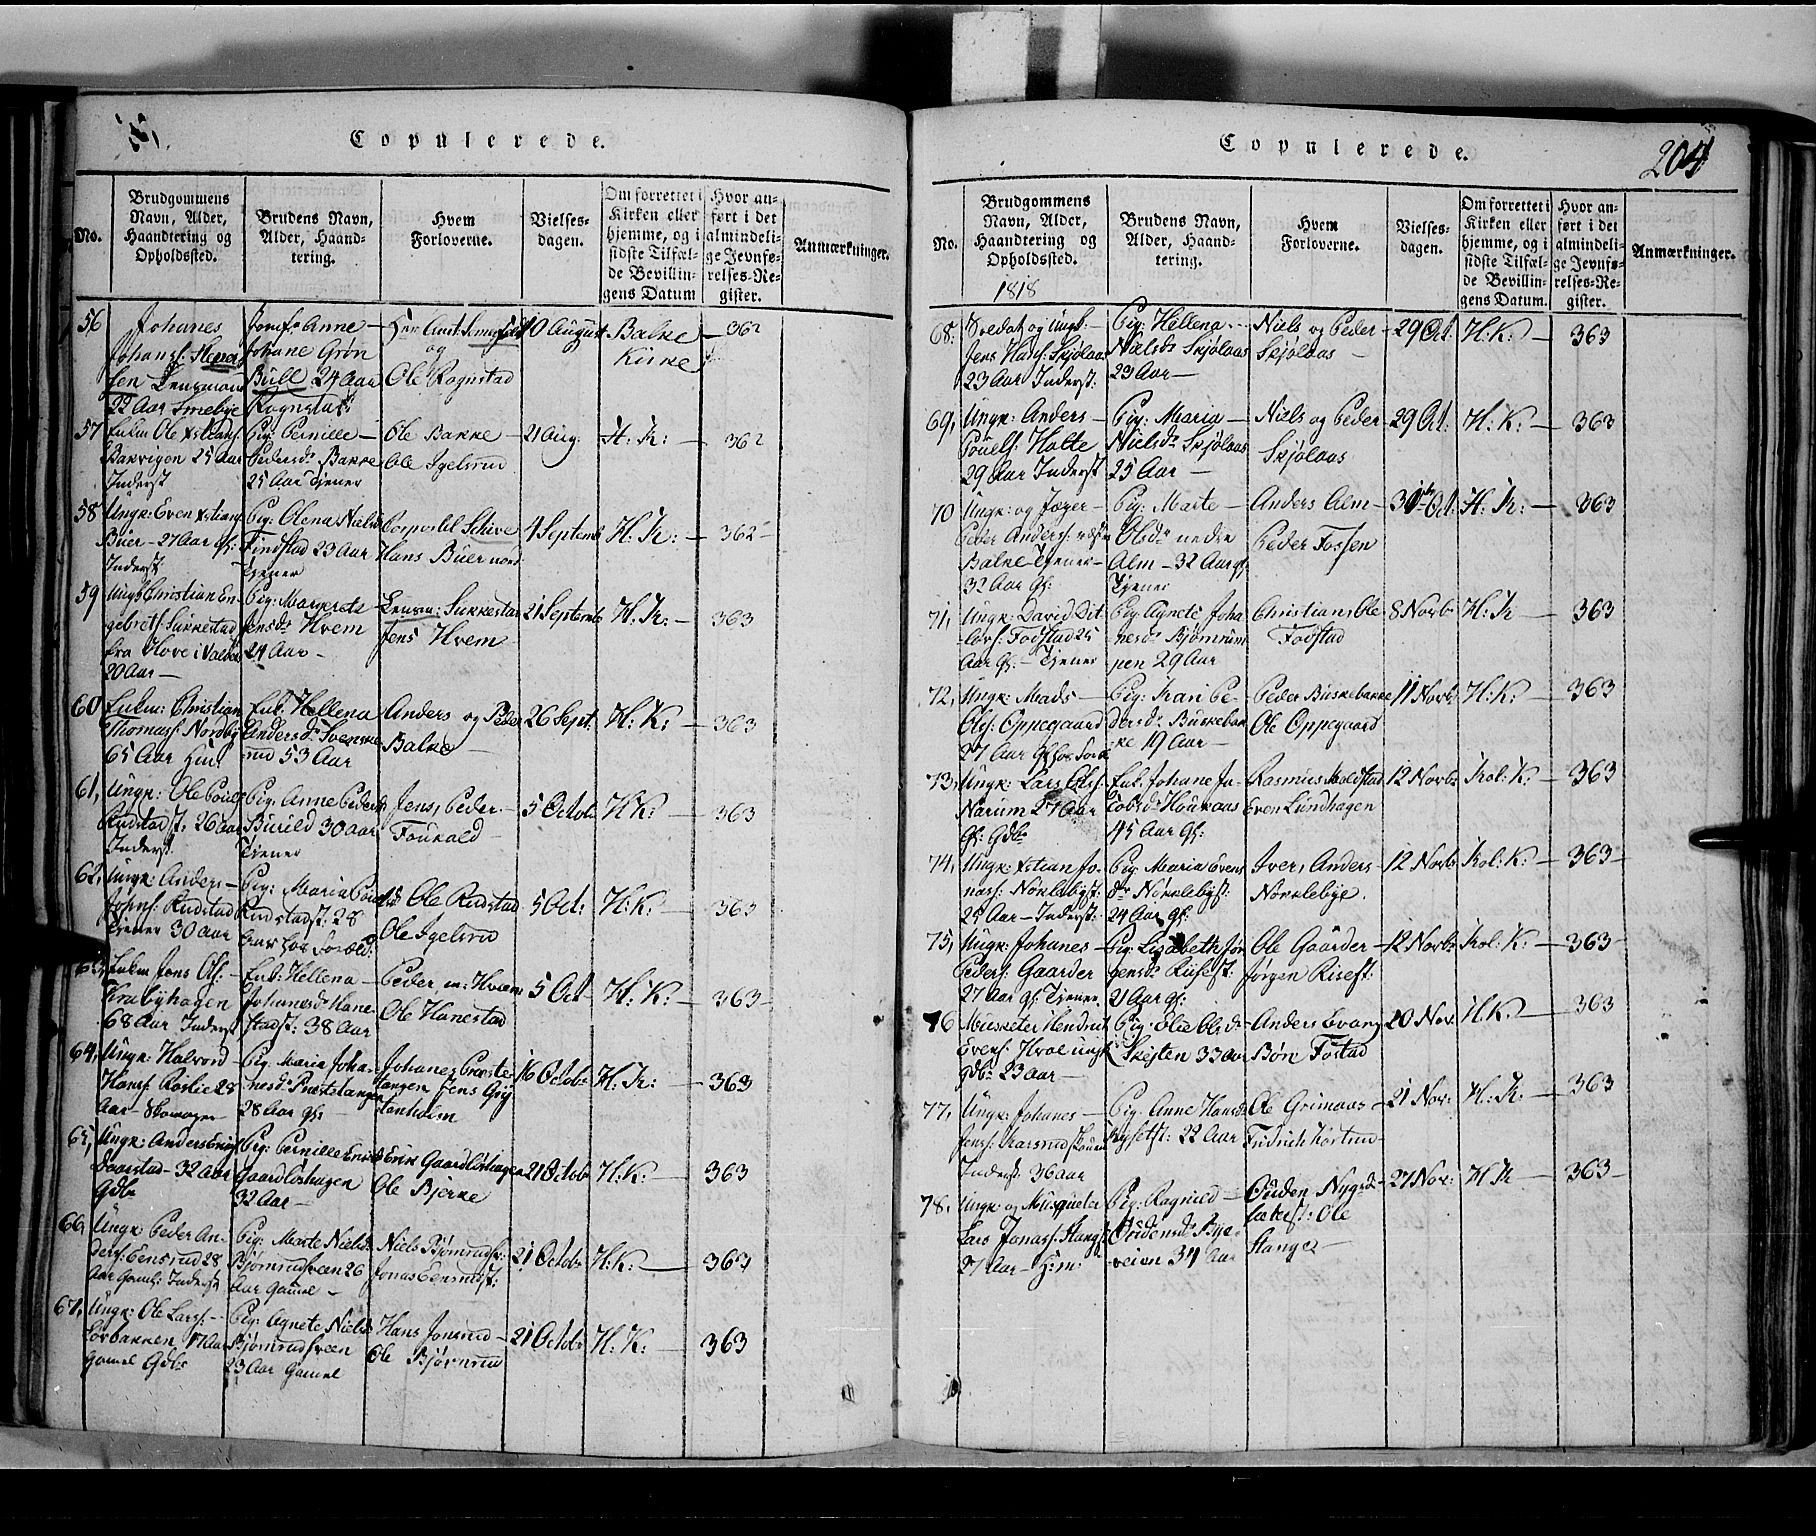 Copulerede.
No.
Brudgommens
Navn, Alder,
Haandtering og
Opholdssted.
Brudens Navn,
Alder, Haand-
tering.
Hvem
Forloverne.
Vielses-
dagen.
Om forrettet i
Kirken eller
hjemme, og i
sidste Tilfæl-
de Bevillin-
gens Datum
Hvor an-
ført i det
almindeli-
ge Jevnfø-
relses-Re-
gister.
Anmærkninger.
56
Johanes
Johans:
Lensmand
22 Aar Smebye
Jomf: Anne
Johane Grøn
Bull 24 Aar
Rognstad
og
Ole Rognstad
10 August
Balke
Kirke
362
57
Enkm Ole
25 Aar
Inderst
Pig: Pernille
Pedersd: Bakke
25 Aar Tjener
Ole Bakke
Ole Igelsrud
21 Aug:
H: K:
362
58
Ungk: Even
Buer 27 Aar gl:
Inderst
Pig: Olena Niels
Findstad 23 Aar
Tjener
Corporal Schive
Hans Buer
4 Septemb
H: K:
362
59
Ungk Christian En-
gebrets: Sukkestad
fra Hove i
20 Aar
Pig: Margrete
Jensd: Hvem
24 Aar
Lensm: Sukkestad
Jens Hvem
21 Septemb
H: K:
363
60
Enkm: Christian
Thomas: Nordby
65 Aar
Enk: Hellena
Andersd: Svenske-
rud 53 Aar
Anders og Peder
Balke
26 Sept:
H: K:
363
61,
Ungk: Ole Pouls
Rudstad 26 Aar
Inderst
Pig: Anne Peders
Burild 30 Aar
Tjener
Jens, Peder
Fourald
5 Octob
H K:
363
62,
Ungk: Anders
Johns: Rudstad
Tjener 30 Aar
Pig: Maria Pouls
Rudstad 28
Ole Rudstad
Ole Igelsrud
5 Oct:
H: K:
363
63,
Enkm Jens Ols:
Krabyhagen
68 Aar Inderst
Enk: Hellena
Johanesd: Hane-
stad: 38 Aar
Peder Hvem
Ole Hanestad
5 Oct
H: K:
363
64,
Ungk: Halvord
Hans: Røslie 28
Aar
Pig: Maria Joha-
nesd: Præstelangen
28 Aar gl:
Johanes Præste-
langen Jens
tenholm
16 Octob
H: K:
363
65,
Ungk: Anders
32 Aar
Gdbr
Pig: Pernille
Gaardløshagen
32 Aar
Erik Gaardløshagen
Ole Bjerke
21 Octob
H: K:
363
66,
Ungk: Peder An-
ders: Eensrud 28
Aar Gaml: Inderst
Pig: Marte Nielsd:
Bjørnrudsveen 26
Aar Gamel
Niels Bjørnrud
Jonas Eensrud
21 Octob
H: K:
363
67,
Ungk: Ole Lars:
Aar
Gamel Gdbr
Pig: Agnete Nielsd:
Bjørnrudsveen
23 Aar Gamel
Hans Jonsrud
Ole Bjørnrud
21 Octob
H: K:
363
Copulerede.
204
No.
Brudgommens
Navn, Alder,
Haandtering og
Opholdssted.
1818
Brudens Navn,
Alder, Haand-
tering.
Hvem
Forloverne.
Vielses-
dagen.
Om forrettet i
Kirken eller
hjemme, og i
sidste Tilfæl-
de Bevillin-
gens Datum.
Hvor an-
ført i det
almindeli-
ge Jevnfø-
relses-Re-
gister.
Anmærkninger.
68:
Soldat og Ungk:
Jens Hans: Skjølaas
23 Aar Inderst:
Pig: Hellena
Nielsd: Skjølaas
23 Aar
Niels og Peder
Skjølaas
29 Oct:
H: K:
363
69,
Ungk: Anders
Pouels: Holte
29 Aar Inderst
Pig: Maria
Nielsd: Skjølaas
25 Aar
Niels og Peder
Skjølaas
29 Oct:
H: K:
363
70
Ungk: og Jæger
Peder Anders:
Balke Tjener
32 Aar gl:
Pig: Marte
Olsd: nedre
Alm 32 Aar gl:
Tjener
Anders Alm
Peder Fossen
Oct:
H: K:
363
71,
Ungk: David Dit-
levs: Fodstad 25
Aar gl: Tjener
Pig Agnete Joha-
nesd:
29 Aar
Christian, Ole
Fodstad
8 Novbr
H: K
363
72,
Ungk: Mads
Ols: Oppegaard
27 Aar
Pig: Kari Pe-
dersd: Buskebak-
ke 19 Aar
Peder Buskebakke
Ole Oppegaard
11 Novb
H: K:
363
73,
Ungk: Lars Ols:
Narum 27 Aar
gl: Gdbr
Enk: Johane Ja-
cobsd:
45 Aar gl:
Rasmus
Even Lundhagen
12 Novbr
Kol: K:
363
74,
Ungk: Jo-
nas: Nøklebyst:
25 Aar Inderst:
Pig: Maria Evens
dr Nøklebyst:
24 Aar gl:
Iver, Anders
Nøklebye.
12 Novb
Kol: K:
363
75,
Ungk: Johanes
Peders: Gaarder
27 Aar gl: Tjener
Pig: Lisabeth Jør-
gensd: Risest:
21 Aar gl:
Ole Gaarder
Jørgen Risest:
12 Novbr
Kol: K:
363
76
Musketer Hendrik
Evens: Hvol ungk
gdbr 23 Aar
Pig: Elie Olsdr
Skejten 33 Aar
Anders Evang
Bøn Fostad
20 Nov:
H. K:
363
77,
Ungk: Johanes
Jens:
Inderst 36 Aar
Pig: Anne Hansd:
22 Aar
Ole Grimaas
Fredrich
21 Nov:
H: K:
363
78,
Ungk: og Musqueter
Lars Jonas: Stang
27 Aar
Pig: Ragnild
Oudensd: Bye-
veien 34 Aar
Ouden
Ole
Stange
27 Nov:
H: K
363